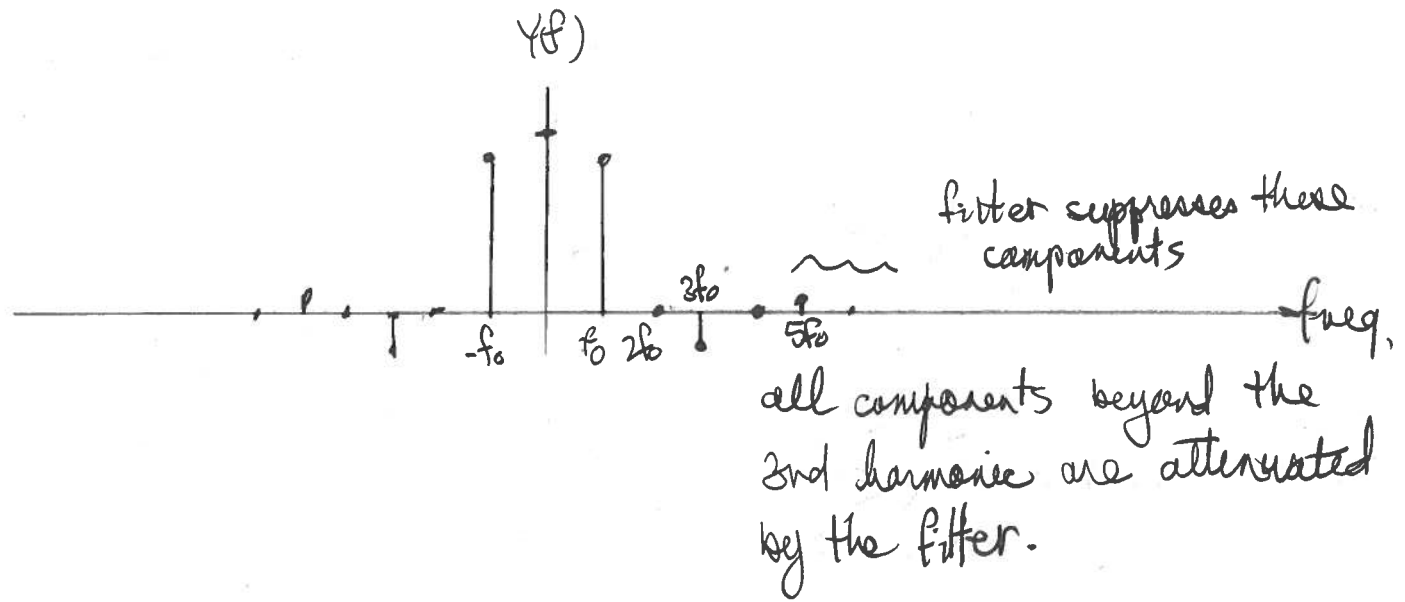 Y(f)
filter suppresses these
components
3f₀
-f₀ f₀ 2f₀ 5f₀
freq.
all components beyond the
3rd harmonic are attenuated
by the filter.